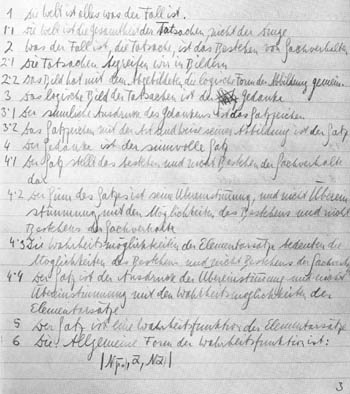 1 Die Welt ist alles was der Fall ist.
1·1 Die Welt ist die Gesamtheit der Tatsachen, nicht der Dinge.
2 Was der Fall ist, die Tatsache, ist das Bestehen von Sachverhalten
2·1 Die Tatsachen begreifen wir in Bildern
2·2 Das Bild hat mit dem Abgebildeten die logische Form der Abbildung gemein.
3 Das logische Bild der Tatsachen ist der Gedanke
3·1 Der sinnliche Ausdruck des Gedankens ist das Satzzeichen
3·2 Das Satzzeichen mit der Art und Weise seiner Abbildung ist der Satz
4 Der Gedanke ist der sinnvolle Satz
4·1 Der Satz stellt das Bestehen und nicht Bestehen der Sachverhalte
dar
4·2 Der Sinn des Satzes ist seine Übereinstimmung, und nicht Überein
stimmung, mit den Möglichkeiten des Bestehens und nicht
Bestehens der Sachverhalte
4·3 Die Wahrheitsmöglichkeiten der Elementarsätze bedeuten die
Möglichkeiten des Bestehens und nicht Bestehens der Sachverhalte
4·4 Der Satz ist der Ausdruck der Übereinstimmung und nicht
Übereinstimmung mit den Wahrheitsmöglichkeiten der
Elementarsätze
5 Der Satz ist eine Wahrheitsfunktion der Elementarsätze
6 Die Allgemeine Form der Wahrheitsfunktion ist:
3